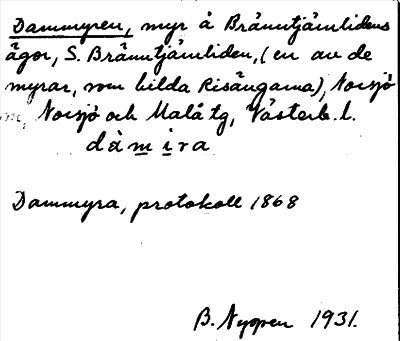 Dammyren, myr å Bränntjärnlidens
ägor, S. Bränntjärnliden, (en av de
myrar, som bilda Risängarna), Norsjö
sn, Norsjö och Malå tg, Västerb. l.
dàmira
Dammyra, protokoll 1868
B. Nyppen 1931.